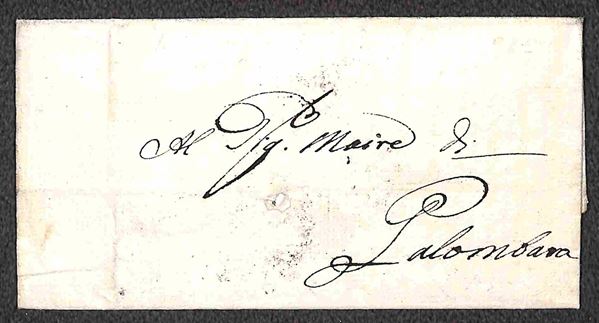 Al Sig. Maire di
Palombara